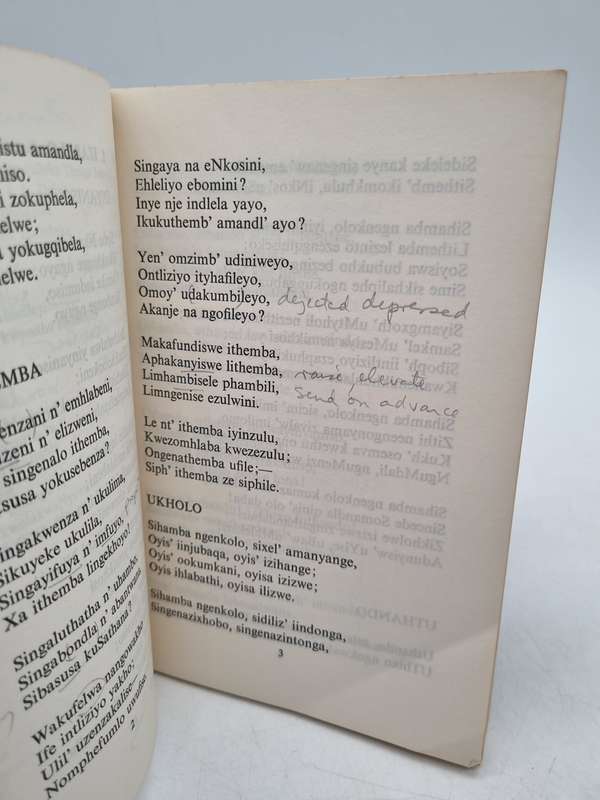 istu amandla,
niso.
i zokuphela,
helwe;
a yokugqibela,
helwe.
EMBA
enzani n' emhlabeni,
zeni n' elizweni,
singenalo ithemba,
susa yokusebenza?
ingakwenza n' ukulima,
Sikuyeke ukulila,
Singayifuya n' imfuyo,
Xa ithemba lingekhoyo!
Singaluthatha n' uhambo,
Singabondla n' abantwana
Sibasusa kuSathana?
Wakufelwa nangowakho
Ife intliziyo yakho;
Ulil' uzenzakalise—
Nomphefumlo uwulise
2
Singaya na eNkosini,
Ehleliyo ebomini?
Inye nje indlela yayo,
Ikukuthemb' amandl' ayo?
Yen' omzimb' udiniweyo,
Ontliziyo ityhafileyo,
Omoy' udakumbileyo, dejected depressed
Akanje na ngofileyo?
Makafundiswe ithemba,
Aphakanyiswe lithemba, raise elevate
Limhambisele phambili, send on advance
Limngenise ezulwini.
Le nt' ithemba iyinzulu,
Kwezomhlaba kwezezulu;
Ongenathemba ufile;—
Siph' ithemba ze siphile.
UKHOLO
Sihamba ngenkolo, sixel' amanyange,
Oyis' iinjubaqa, oyis' izihange;
Oyis' ookumkani, oyisa izizwe;
Oyis ihlabathi, oyisa ilizwe.
Sihamba ngenkolo, sidiliz' iindonga,
Singenazixhobo, singenazintonga,
3